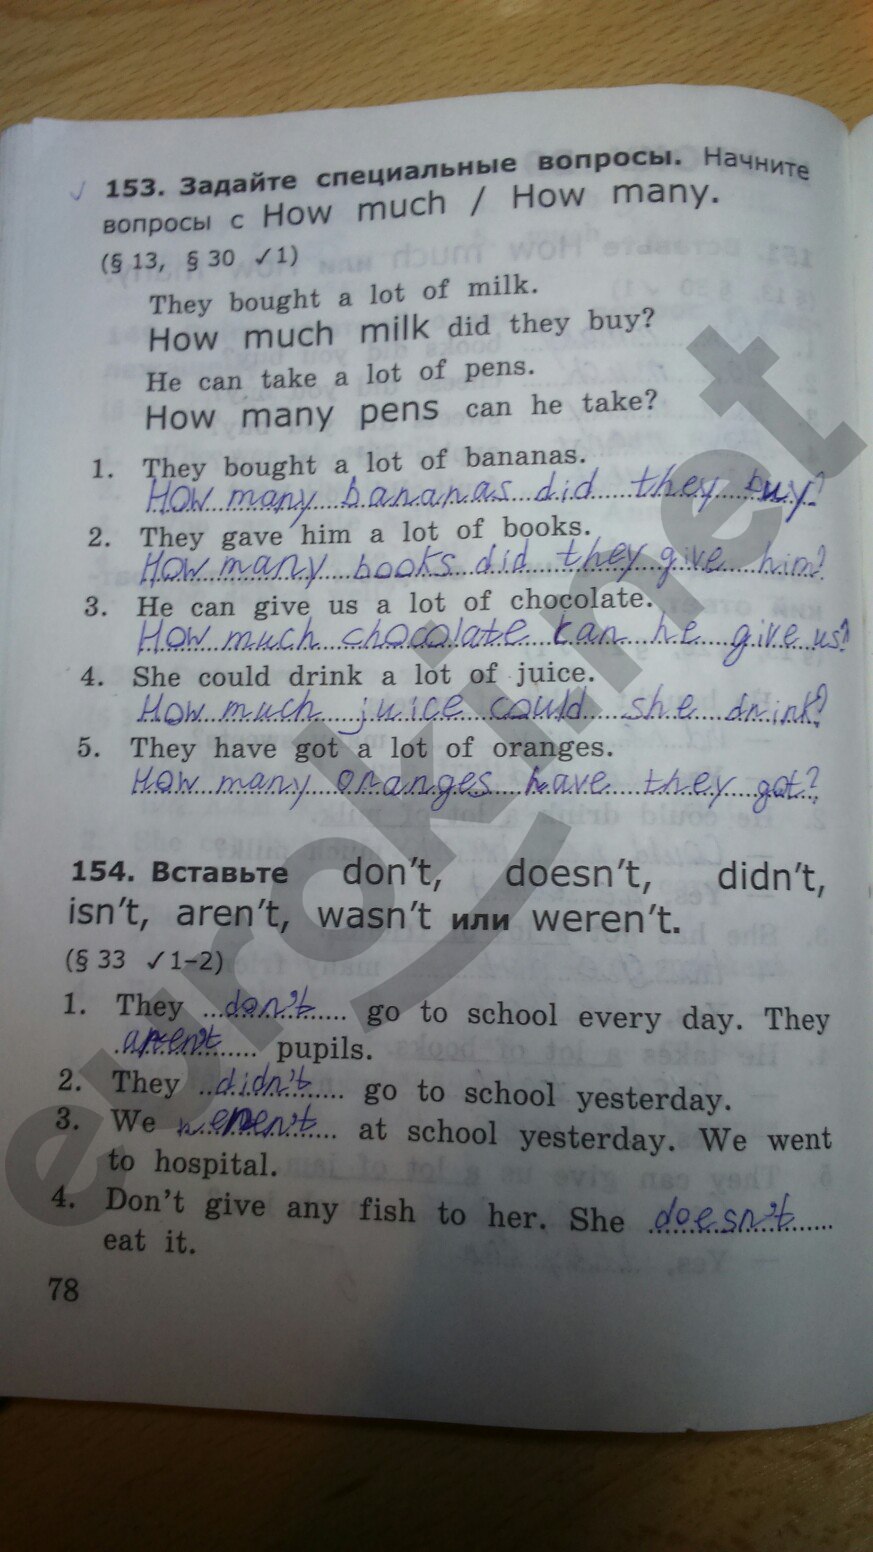 153. Задайте специальные вопросы. Начните
вопросы с How much / How many.
(§ 13, § 30 ✓1)
They bought a lot of milk.
How much milk did they buy?
He can take a lot of pens.
How many pens can he take?
1. They bought a lot of bananas.
How many bananas did they buy?
2. They gave him a lot of books.
How many books did they give him?
3. He can give us a lot of chocolate.
How much chocolate can he give us?
4. She could drink a lot of juice.
How much juice could she drink?
5. They have got a lot of oranges.
How many oranges have they got?
154. Вставьте don't, doesn't, didn't,
isn't, aren't, wasn't или weren't.
(§ 33 ✓1–2)
1. They don't go to school every day. They
aren't pupils.
2. They didn't go to school yesterday.
3. We weren't at school yesterday. We went
to hospital.
4. Don't give any fish to her. She doesn't
eat it.
78
eurokl.net